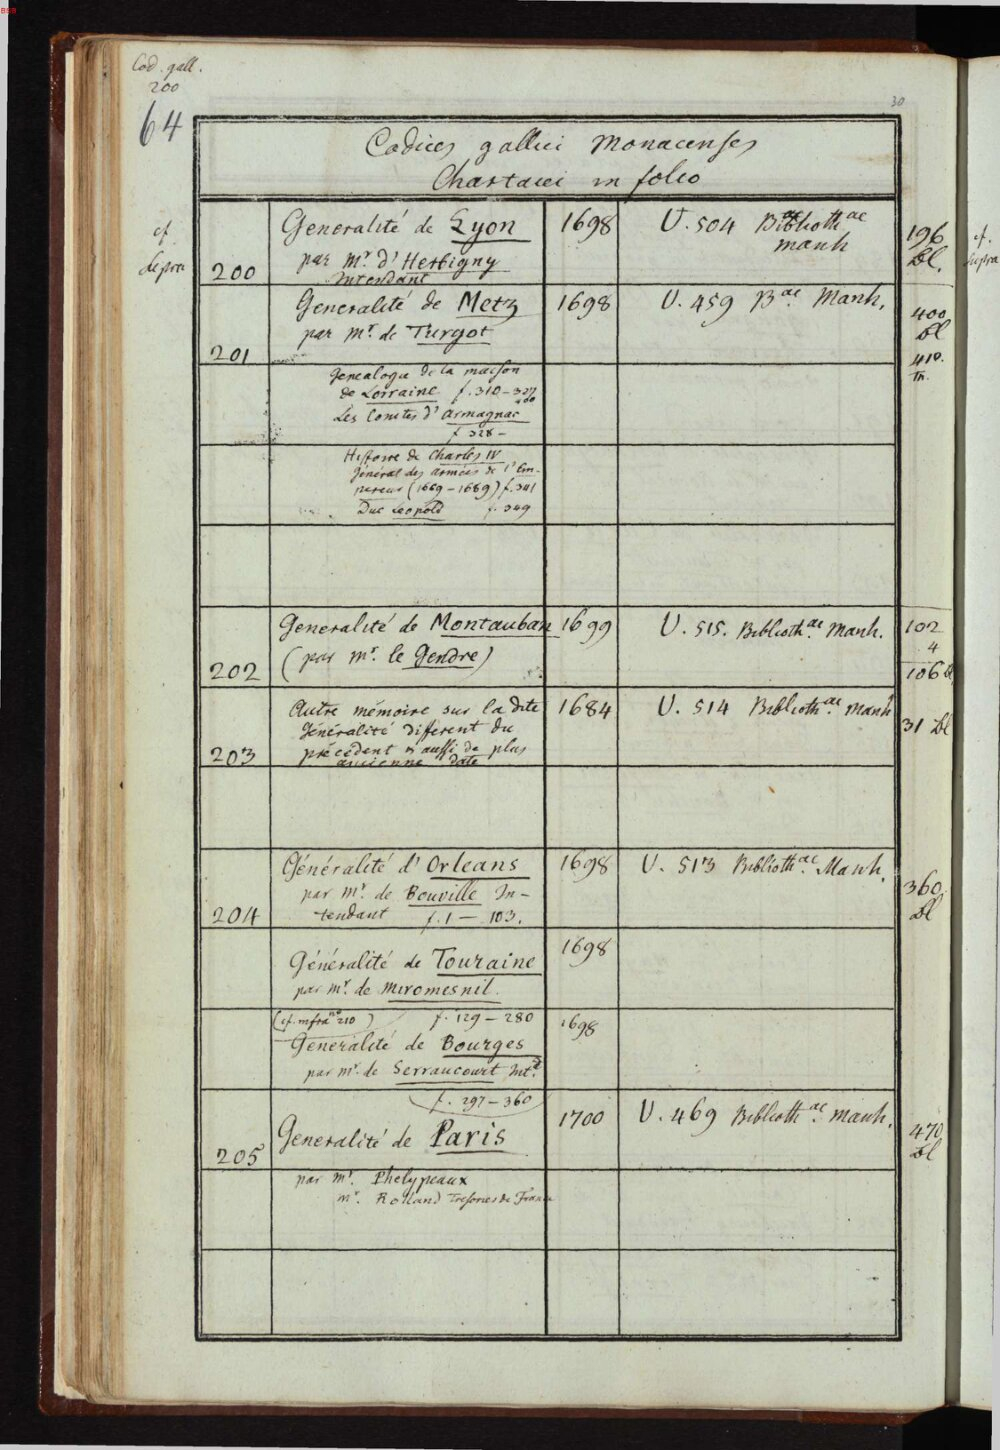 BSB
Cod. gall.
200
64
30
Codices gallici Monacenses
Chartacei in folio
cf.
supra
200
Generalité de Lyon
par Mr. d'Herbigny
Intendant
1698
U. 504 Biblioth ae
manh
196
Bl.
cf.
supra
201
Generalité de Metz
par Mr. de Turgot
1698
U. 459 B ae. Manh.
400
Bl
410.
Tn.
Genealogie de la maison
de Lorraine f. 310 – 327
400
Les Comtes d'Armagnac
f 328 –
Histoire de Charles IV
Général des armées de l'Em-
pereur (1669 – 1689) f. 341
Duc Leopold f. 349
202
Generalité de Montauban
(par Mr. le Gendre)
1699
U. 515. Biblioth. ae Manh.
102
4
106 Bl
203
Autre mémoire sur la dite
Généralité different du
précédent & aussi de plus
ancienne date
1684
U. 514 Biblioth. ae manh
31 Bl
204
Généralité d'Orleans
par Mr. de Bouville In-
tendant f. 1 — 103.
1698
U. 513 Biblioth. ae Manh.
360.
Bl
Généralité de Touraine
par Mr. de Miromesnil.
1698
(cf. infra no 210) f. 129 – 280
Generalité de Bourges
par Mr. de Serraucourt Int.t
1698
f. 297 – 360
205
Generalité de Paris
1700
U. 469 Biblioth. ae manh.
470
Bl
par Mr. Phelypeaux
Mr. Rolland Tresories de France